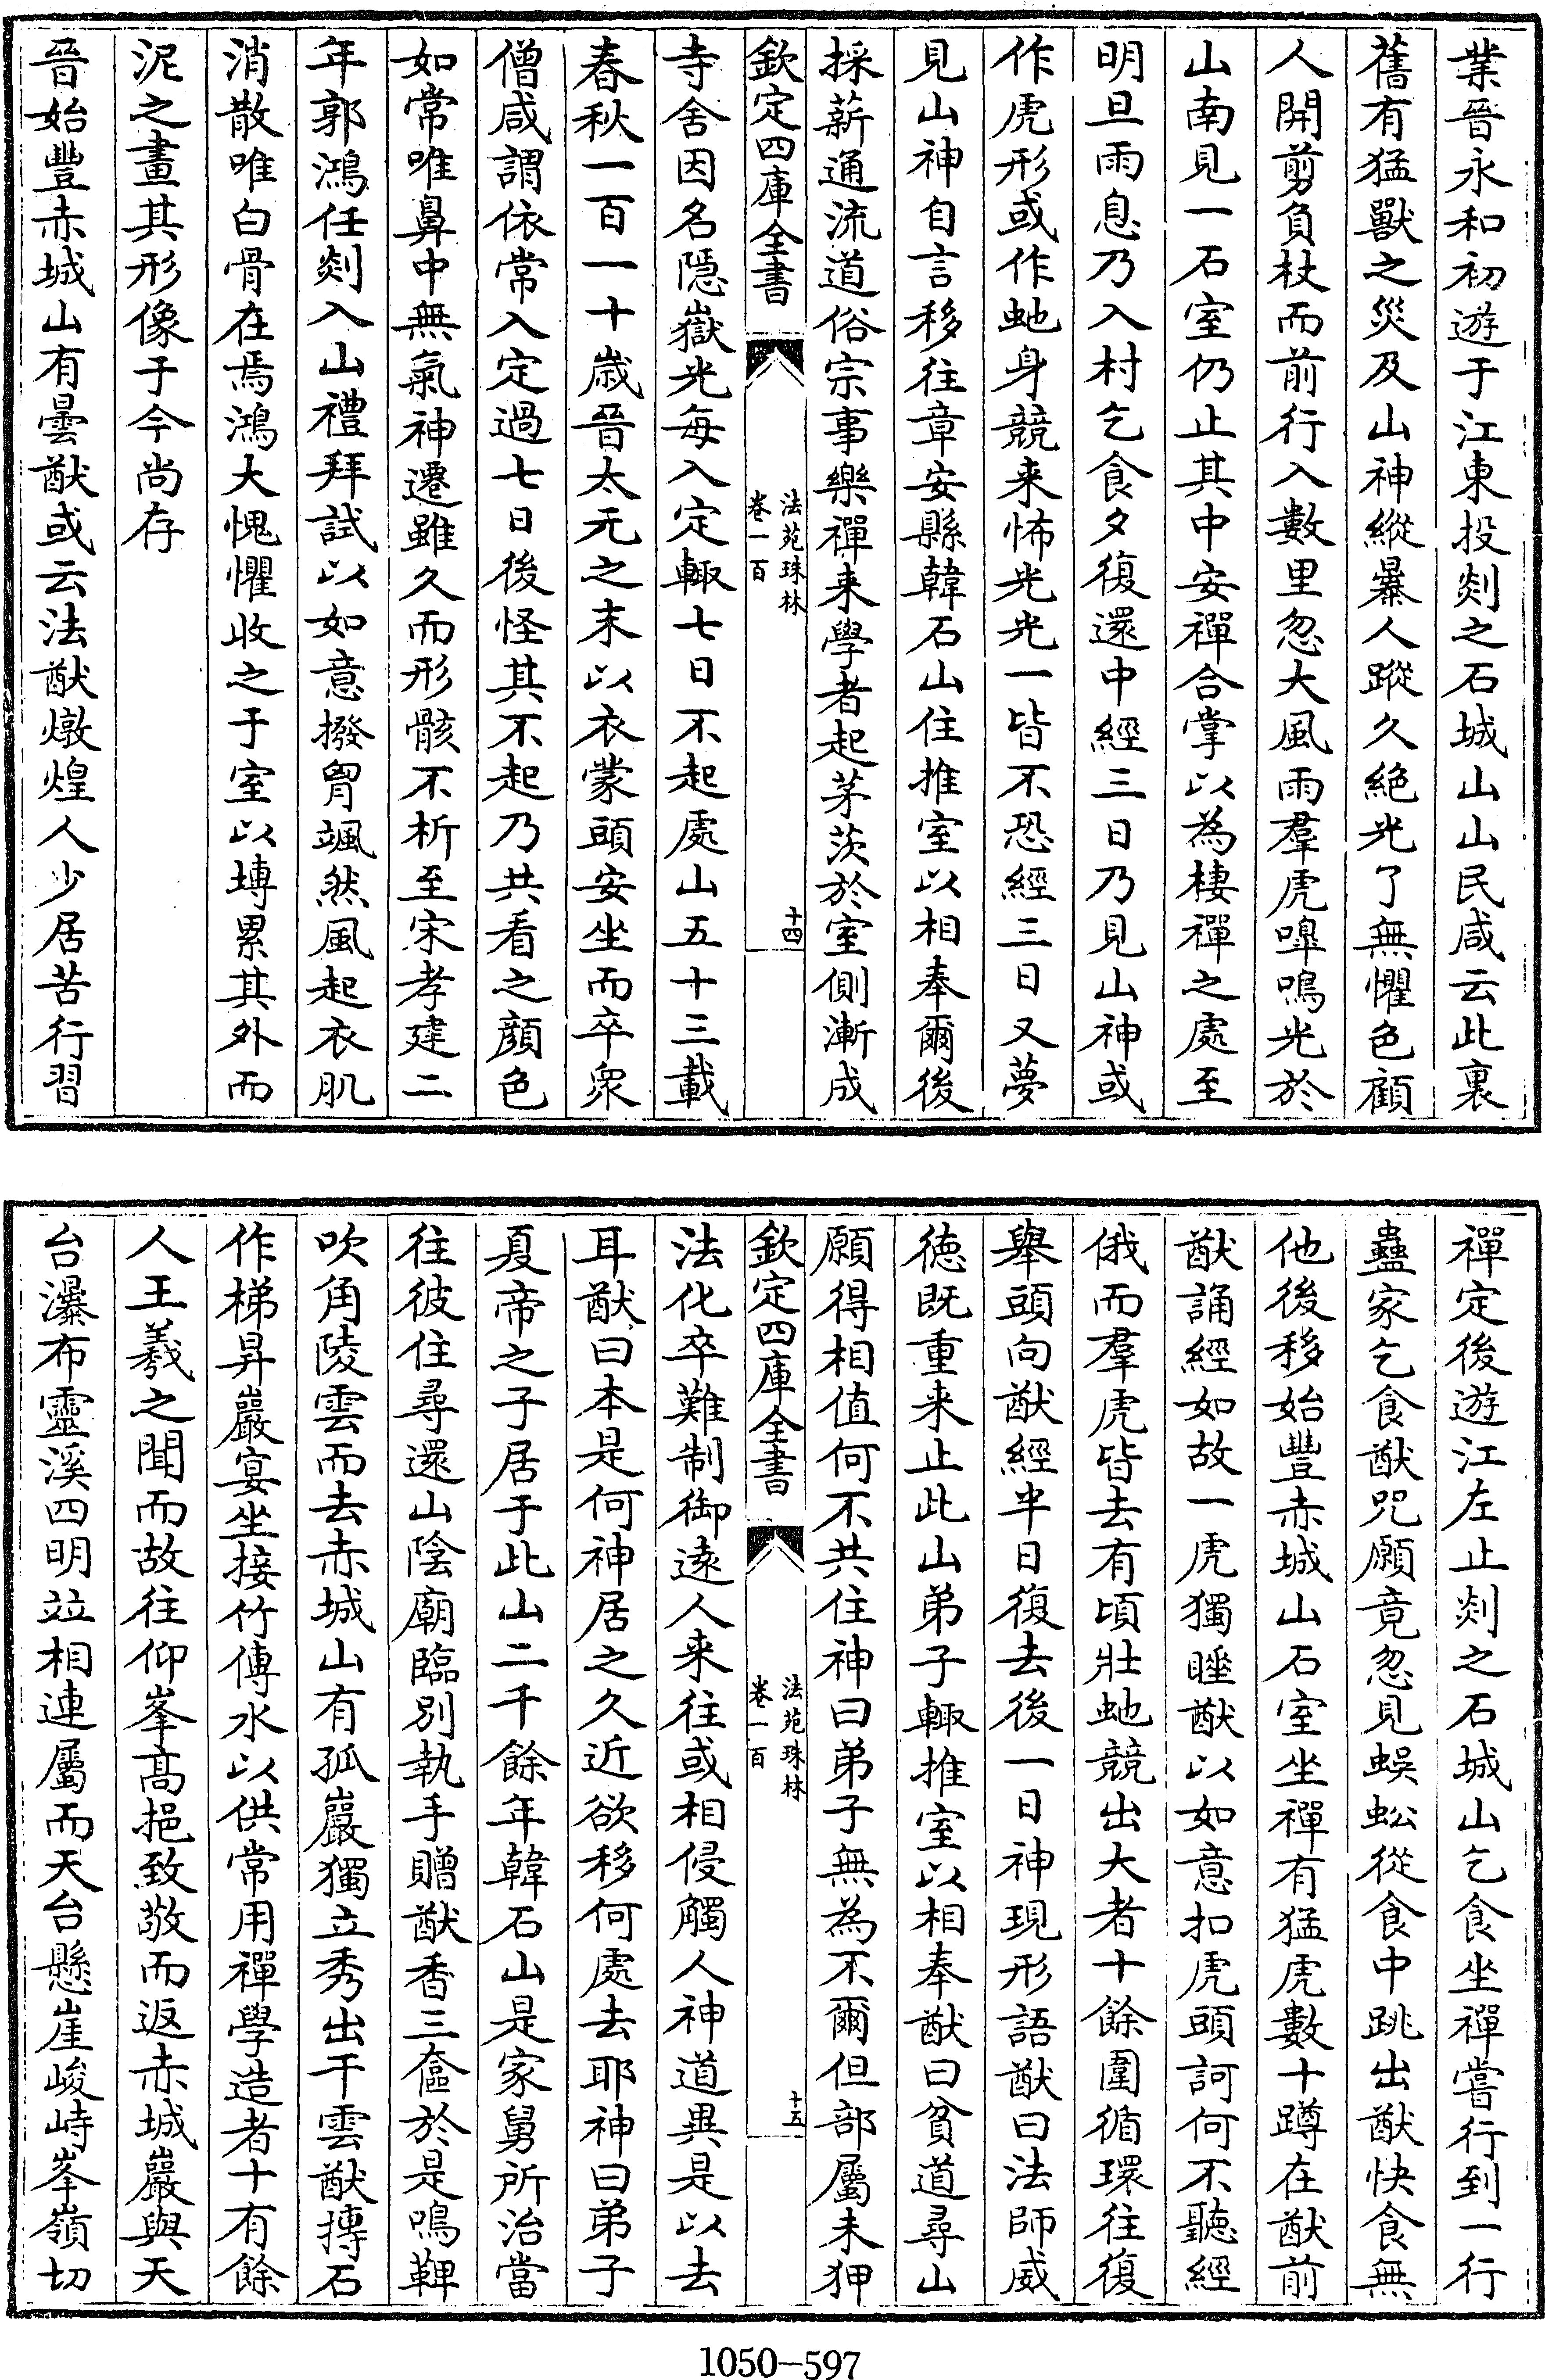 業晉永和初遊于江東投剡之石城山山民咸云此裏
舊有猛獸之災及山神縱暴人蹤久絶光了無懼色顧
人開剪負杖而前行入數里忽大風雨羣虎嘷鳴光於
山南見一石室仍止其中安禪合掌以為棲禪之處至
明旦雨息乃入村乞食夕復還中經三日乃見山神或
作虎形或作虵身競来怖光光一皆不恐經三日又夢
見山神自言移往章安縣韓石山住推室以相奉爾後
採薪通流道俗宗事樂禪来學者起茅茨於室側漸成
欽定四庫全書
法苑珠林
卷一百
十四
寺舍因名隱嶽光每入定輙七日不起處山五十三載
春秋一百一十歳晉太元之末以衣蒙頭安坐而卒衆
僧咸謂依常入定過七日後怪其不起乃共看之顔色
如常唯鼻中無氣神遷雖久而形骸不析至宋孝建二
年郭鴻任剡入山禮拜試以如意撥胷颯然風起衣肌
消散唯白骨在焉鴻大愧懼收之于室以塼累其外而
泥之畫其形像于今尚存
晉始豐赤城山有曇猷或云法猷燉煌人少居苦行習
禪定後遊江左止剡之石城山乞食坐禪嘗行到一行
蠱家乞食猷咒願竟忽見蜈蚣從食中跳出猷快食無
他後移始豐赤城山石室坐禪有猛虎數十蹲在猷前
猷誦經如故一虎獨睡猷以如意扣虎頭訶何不聽經
俄而羣虎皆去有頃壯虵競出大者十餘圍循環往復
舉頭向猷經半日復去後一日神現形語猷曰法師威
徳既重来止此山弟子輙推室以相奉猷曰貧道尋山
願得相值何不共住神曰弟子無為不爾但部屬未狎
欽定四庫全書
法苑珠林
卷一百
十五
法化卒難制御遠人来往或相侵觸人神道異是以去
耳猷曰本是何神居之久近欲移何處去耶神曰弟子
夏帝之子居于此山二千餘年韓石山是家舅所治當
往彼住尋還山陰廟臨别執手贈猷香三奩於是鳴鞞
吹角陵雲而去赤城山有孤巖獨立秀出干雲猷摶石
作梯昇巖宴坐接竹傳水以供常用禪學造者十有餘
人王羲之聞而故往仰峯髙挹致敬而返赤城巖與天
台瀑布靈溪四明竝相連屬而天台懸崖峻峙峯嶺切
1050-597